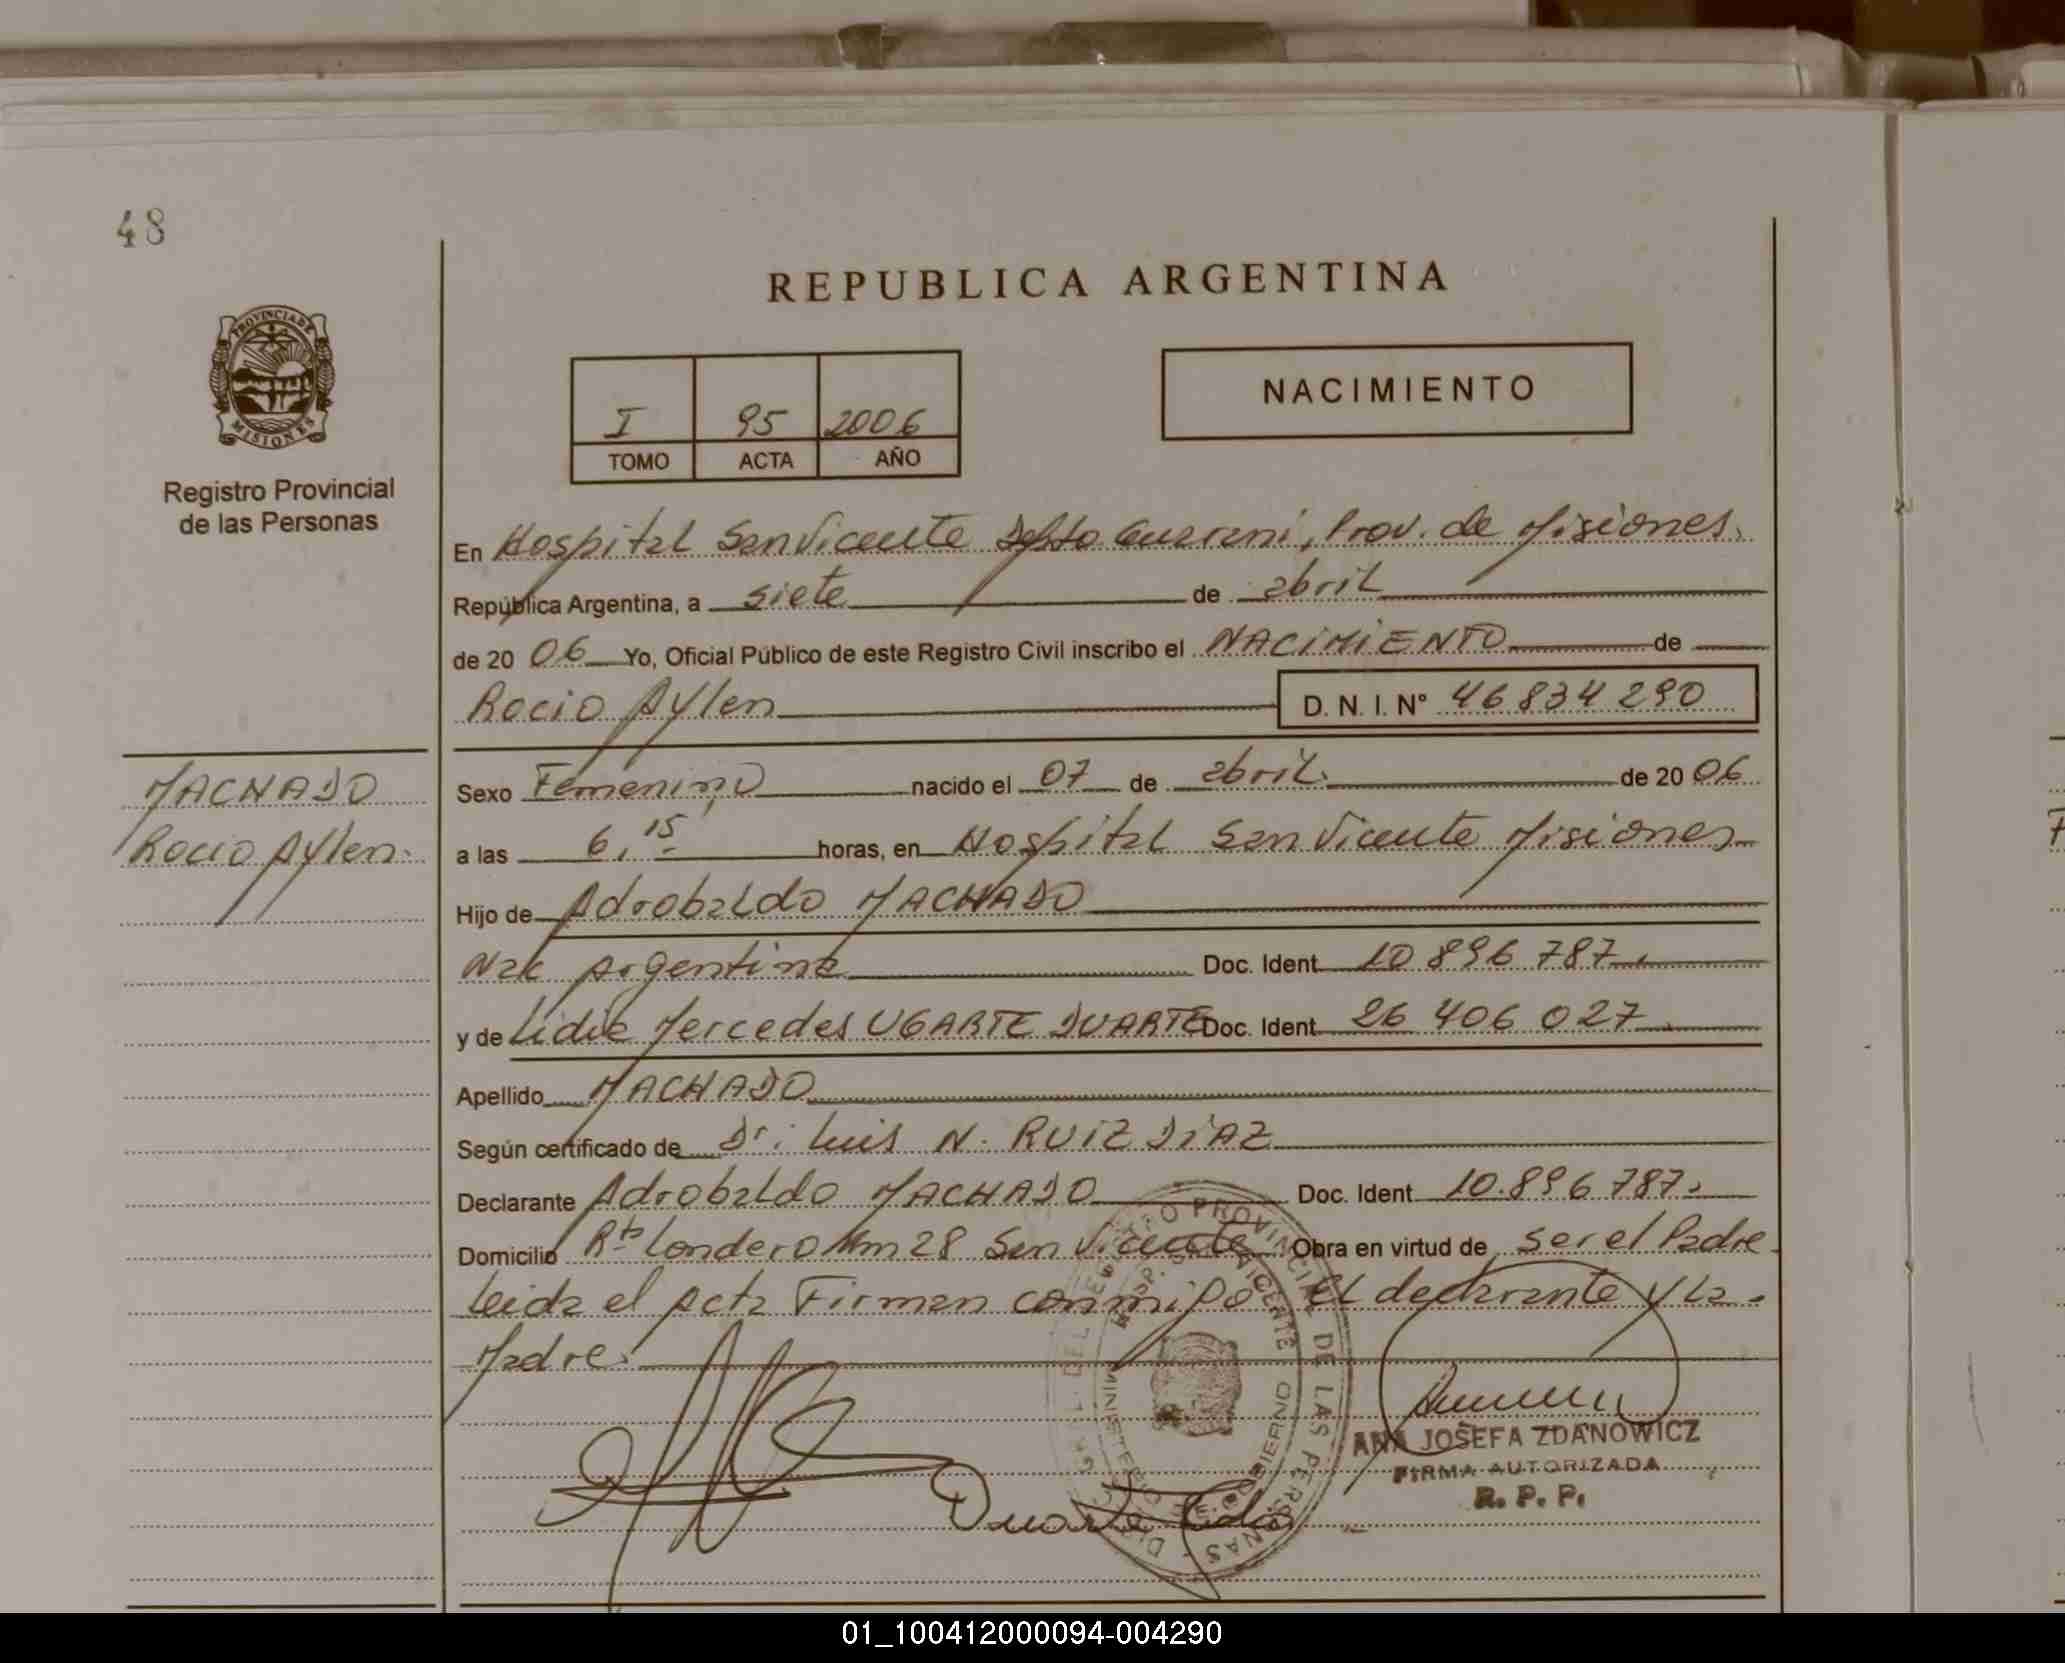 48
REPUBLICA ARGENTINA
PROVINCIA DE
MISIONES
Registro Provincial
de las Personas
I 95 2006
TOMO ACTA AÑO
NACIMIENTO
En Hospital San Vicente Depto Guarani, Prov. de Misiones.
República Argentina, a siete de abril
de 20 06 Yo, Oficial Público de este Registro Civil inscribo el NACIMIENTO de
Rocio Aylen D. N. I. N° 46834290
MACHADO
Rocio Aylen.
Sexo Femenino nacido el 07 de abril. de 20 06
a las 6,15 horas, en Hospital San Vicente Misiones
Hijo de Adrobaldo MACHADO
Nac Argentina Doc. Ident. 10 896 787.
y de Lidia Mercedes UGARTE DUARTE Doc. Ident. 26 406 027
Apellido MACHADO
Según certificado de Dr: Luis N. RUIZ DIAZ
Declarante Adrobaldo MACHADO Doc. Ident. 10.896 787.
Domicilio Londero Km 28 San Vicente Obra en virtud de ser el Padre
Leida el Acta Firman conmigo el declarante y la
Madre.
REGISTRO PROVINCIAL DE LAS PERSONAS
HOSP. S. VICENTE
MINISTERIO DE GOBIERNO
ANA JOSEFA ZDANOWICZ
FIRMA AUTORIZADA
R. P. P.
Duarte Lidia
01_100412000094-004290